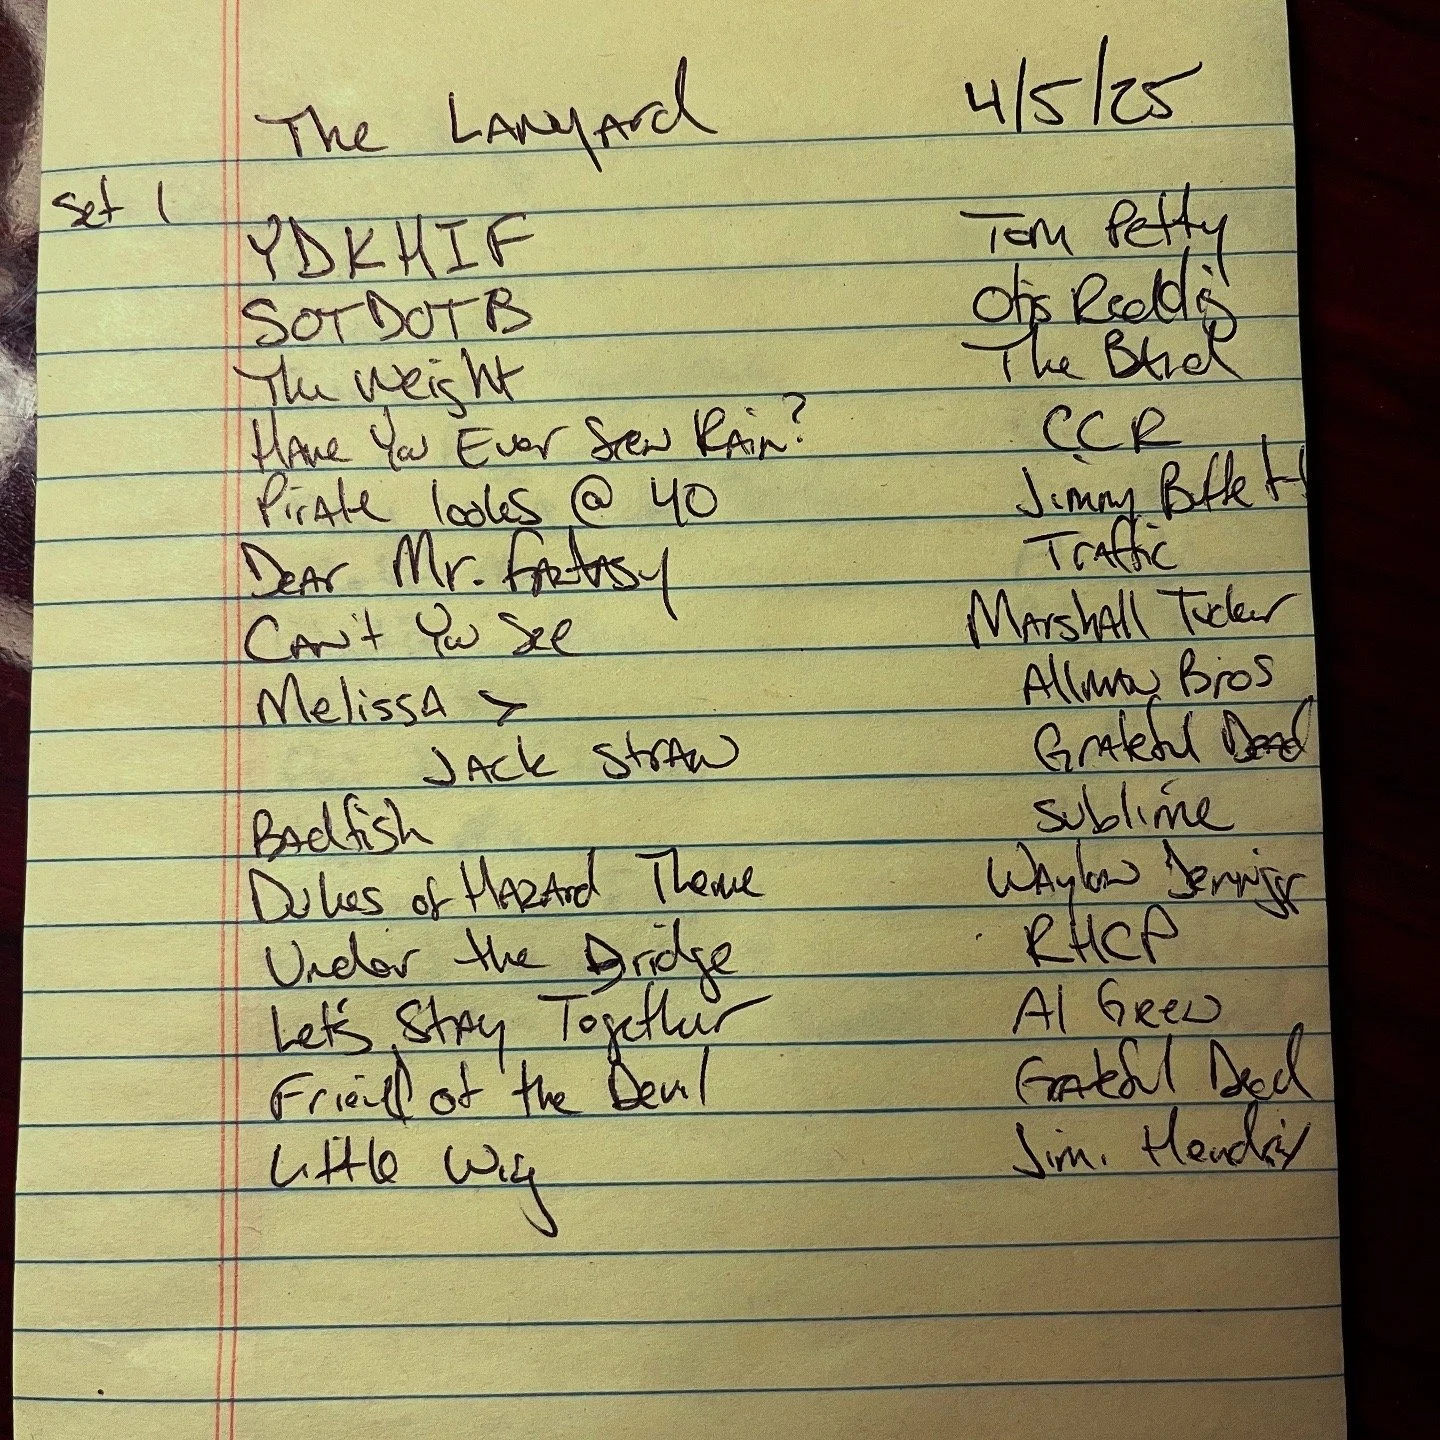 The Lanyard 4/5/25
Set 1
YDKHIF Tom Petty
SOTDOTB Otis Redding
The Weight The Band
Have You Ever Seen Rain? CCR
Pirate looks @ 40 Jimmy Buffett
Dear Mr. Fantasy Traffic
Can't You See Marshall Tucker
Melissa > Allman Bros
Jack Straw Grateful Dead
Badfish Sublime
Dukes of Hazard Theme Waylon Jennings
Under the Bridge RHCP
Let's Stay Together Al Green
Friend of the Devil Grateful Dead
Little Wing Jimi Hendrix